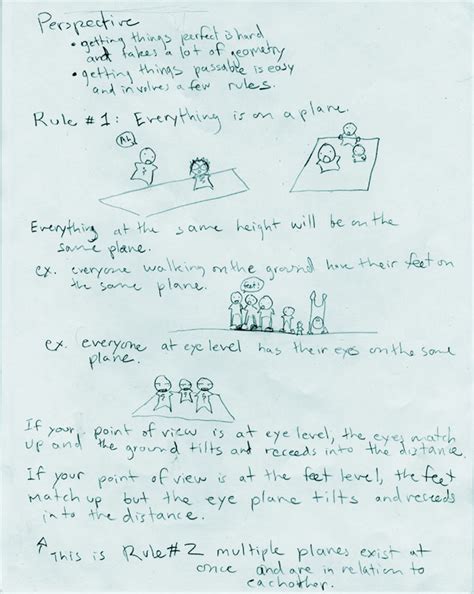 Perspective
• getting things perfect is hard
and takes a lot of geometry
• getting things passable is easy
and involves a few rules.
Rule #1: Everything is on a plane.
Ah
Everything at the same height will be on the
same plane.
ex. everyone walking on the ground have their feet on
the same plane.
feet!
ex. everyone at eye level has their eyes on the same
plane.
If your point of view is at eye level, the eyes match
up and the ground tilts and receeds into the distance.
If your point of view is at the feet level, the feet
match up but the eye plane tilts and receeds
into the distance.
↑ This is Rule #2 multiple planes exist at
once and are in relation to
eachother.